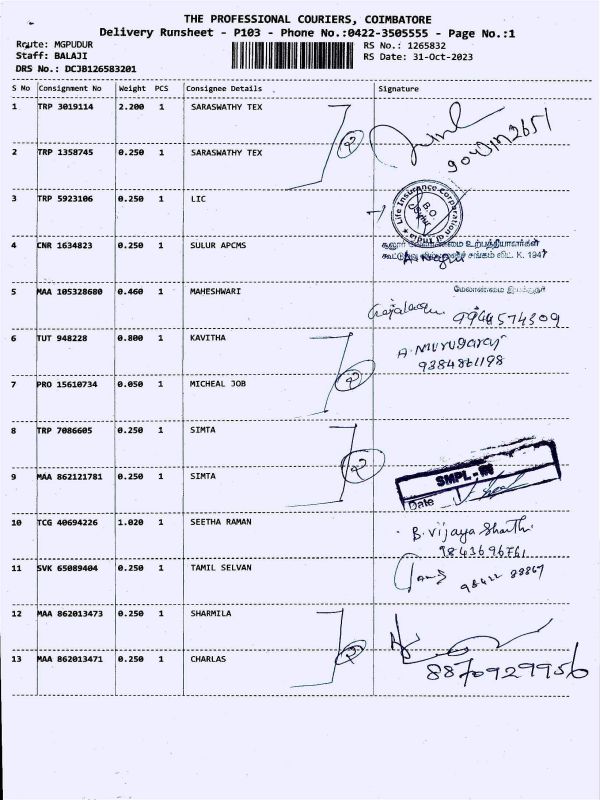 THE PROFESSIONAL COURIERS, COIMBATORE
Delivery Runsheet - P103 - Phone No.:0422-3505555 - Page No.:1
Route: MGPUDUR RS No.: 1265832
Staff: BALAJI RS Date: 31-Oct-2023
DRS No.: DCJB126583201
S No Consignment No Weight PCS Consignee Details Signature
1 TRP 3019114 2.200 1 SARASWATHY TEX
2 TRP 1358745 0.250 1 SARASWATHY TEX
2
3 TRP 5923106 0.250 1 LIC
Life Insurance Corporation of India
B.O
4 CNR 1634823 0.250 1 SULUR APCMS
சூலூர் வேளாண்மை உற்பத்தியாளர்கள்
கூட்டுறவு விற்பனைச் சங்கம் லிட். K. 1947
5 MAA 105328680 0.460 1 MAHESHWARI
மேலாண்மை இயக்குநர்
9944574309
6 TUT 948228 0.800 1 KAVITHA
A. Murugaraj
9384861198
7 PRO 15610734 0.050 1 MICHEAL JOB
2
8 TRP 7086605 0.250 1 SIMTA
2
9 MAA 862121781 0.250 1 SIMTA
SMPL -
Date
10 TCG 40694226 1.020 1 SEETHA RAMAN
B. Vijaya Shanthi
9843696761
11 SVK 65089404 0.250 1 TAMIL SELVAN
98422 88867
12 MAA 862013473 0.250 1 SHARMILA
2
13 MAA 862013471 0.250 1 CHARLAS
8870929956